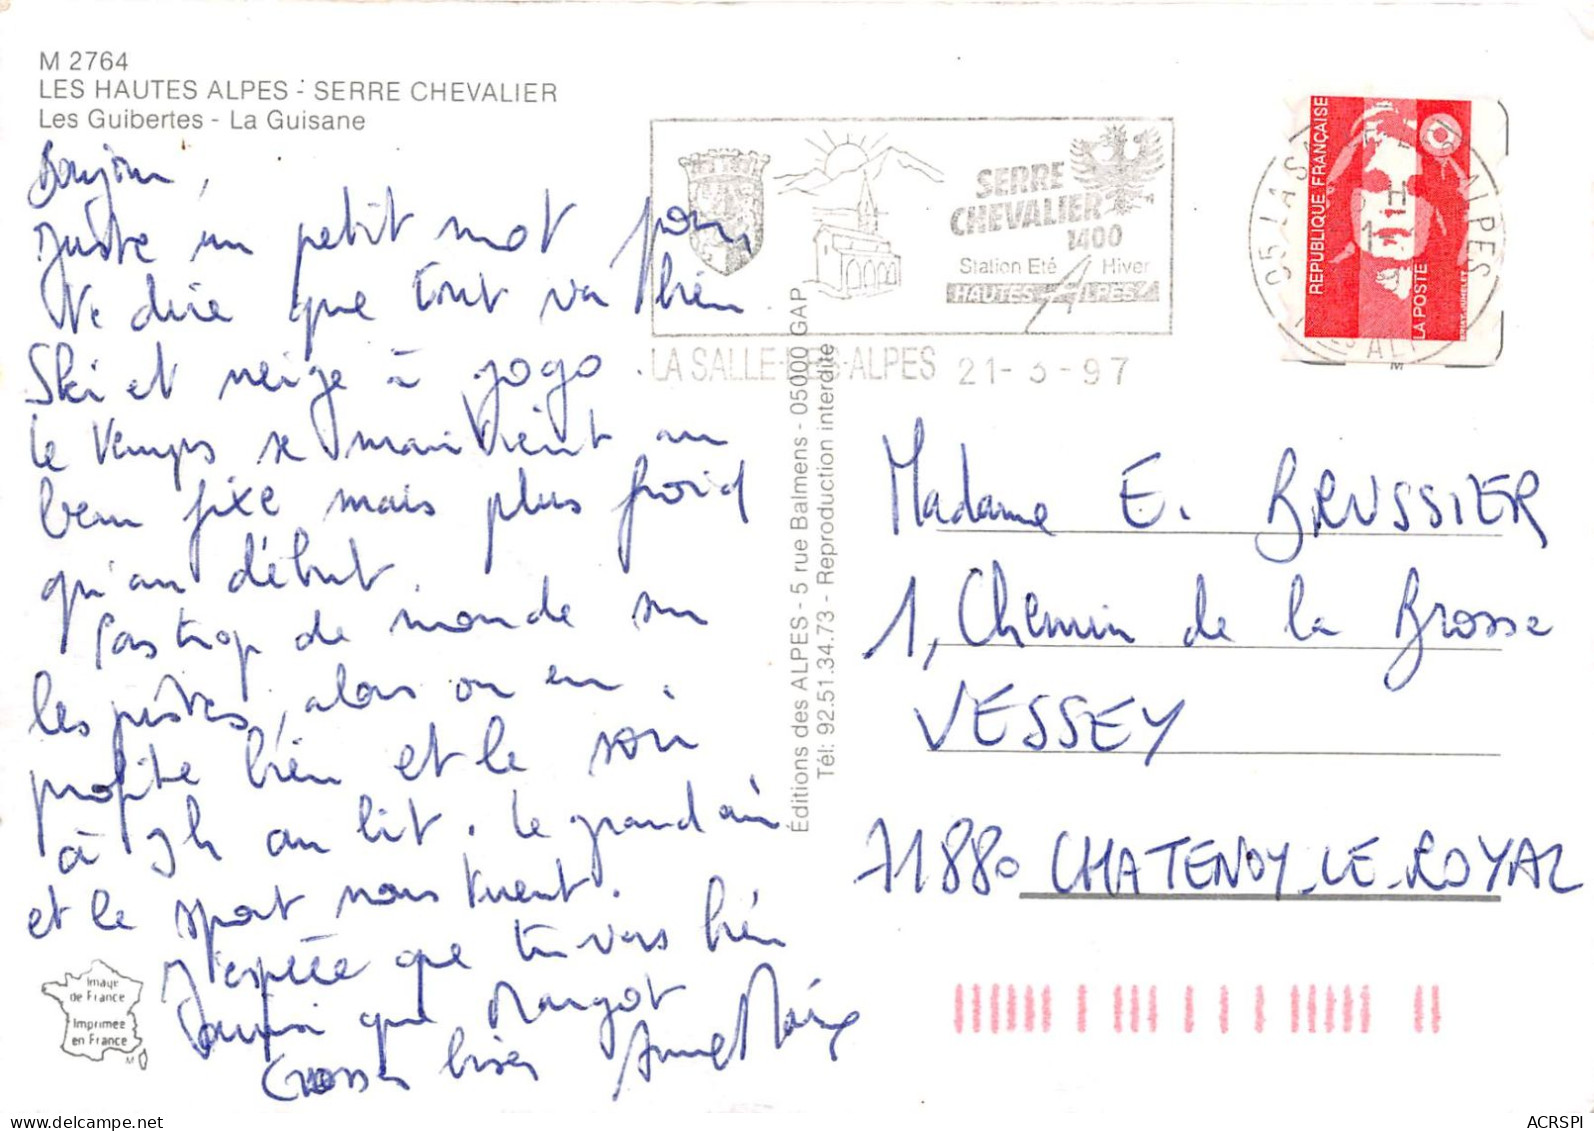 M 2764
LES HAUTES ALPES - SERRE CHEVALIER
Les Guibertes - La Guisane
Bonjour,
Juste un petit mot pour
te dire que tout va bien
Ski et neige à gogo.
Le temps se maintient au
beau fixe mais plus froid
qu'au début.
Pas trop de monde sur
les pistes, alors on en
profite bien et le soir
à 9h au lit. Le grand air
et le sport nous tuent.
J'espère que tu vas bien
ainsi que Margot
Grosses bises Anne Marie
Image
de France
Imprimée
en France
Éditions des ALPES - 5 rue Balmens - 05000 GAP
Tél: 92.51.34.73 - Reproduction interdite
SERRE
CHEVALIER
1400
Station Eté Hiver
HAUTES ALPES
LA SALLE-LES-ALPES 21-3-97
REPUBLIQUE FRANÇAISE
LA POSTE
Madame E. BRUSSIER
1, Chemin de la Brosse
VESSEY
71880 CHATENOY-LE-ROYAL
ACRSPI